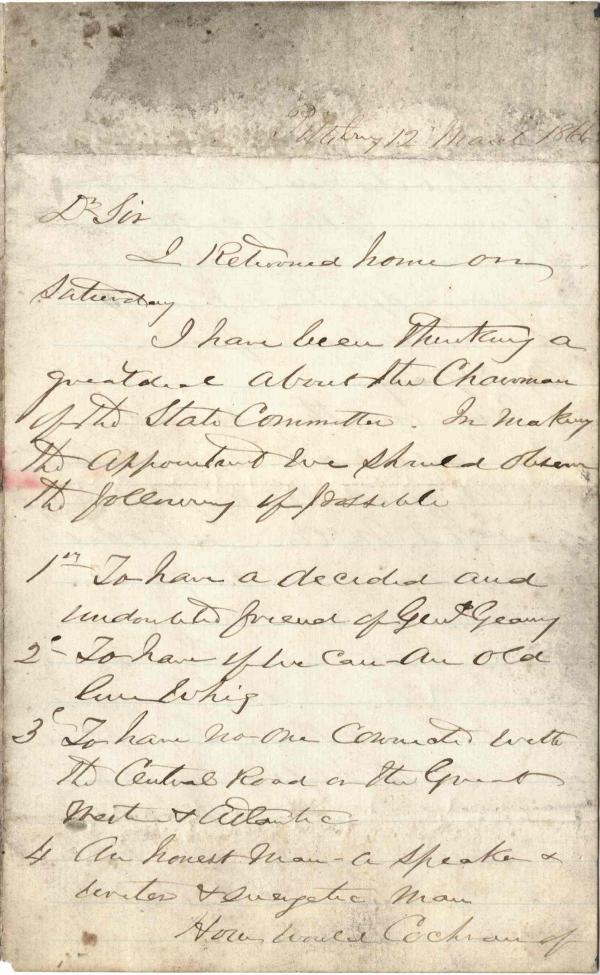 Pittsburg 12 March 1866
Dr Sir
I Returned home on
Saturday
I have been Thinking a
great deal about the Chairman
of the State Committee. In making
the appointment we should observe
the following if possible
1st To have a decided and
undoubted friend of Genl Geary
2d To have if we can - an old
line Whig
3d To have no one Connected with
the Central Road or the Great
Western & Atlantic
4 An honest Man - a speaker &
writer & energetic Man
How would Cochran of